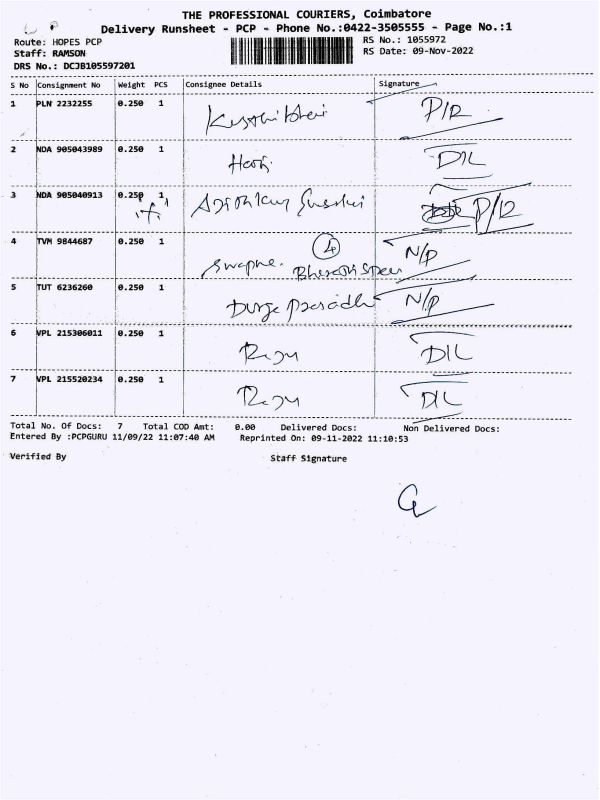 THE PROFESSIONAL COURIERS, Coimbatore
Delivery Runsheet - PCP - Phone No.:0422-3505555 - Page No.:1
Route: HOPES PCP RS No.: 1055972
Staff: RAMSON RS Date: 09-Nov-2022
DRS No.: DCJB105597201
S No Consignment No Weight PCS Consignee Details Signature
1 PLN 2232255 0.250 1 P/R
2 NDA 905043989 0.250 1 D/L
3 NDA 905040913 0.250 1 P/R
4 TVM 9844687 0.250 1 4 N/P
Swapne.
5 TUT 6236260 0.250 1 N/P
6 VPL 215306011 0.250 1 Raju D/L
7 VPL 215520234 0.250 1 Raju D/L
Total No. Of Docs: 7 Total COD Amt: 0.00 Delivered Docs: Non Delivered Docs:
Entered By :PCPGURU 11/09/22 11:07:40 AM Reprinted On: 09-11-2022 11:10:53
Verified By Staff Signature